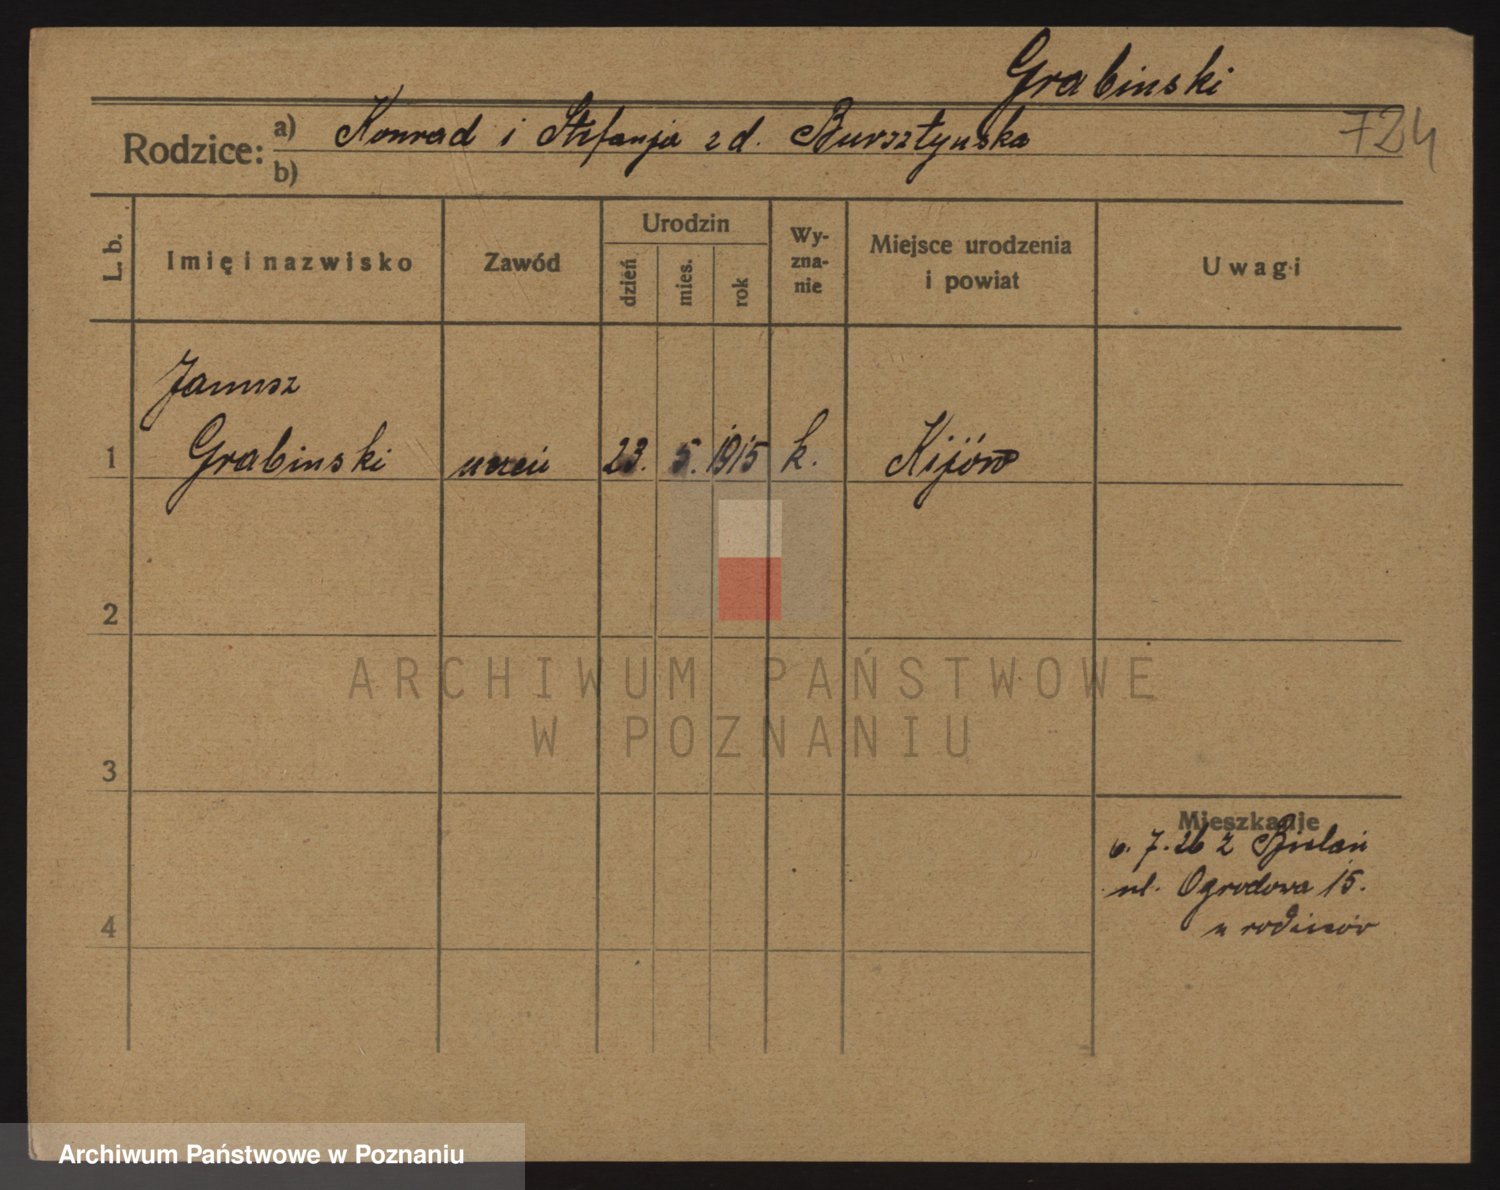 Grabinski
724
Rodzice: a) Konrad i Stefanja z d. Bursztynska
b)
L. b.
Imię i nazwisko
Zawód
Urodzin
dzień
mies.
rok
Wy-
zna-
nie
Miejsce urodzenia
i powiat
Uwagi
Janusz
1 Grabinski uczeń 23. 5. 1915 k. Kijów
2
ARCHIWUM PAŃSTWOWE
W POZNANIU
3
Mieszkanie
6. 7. 26 z Bielan
ul. Ogrodowa 15.
u rodziców
4
Archiwum Państwowe w Poznaniu